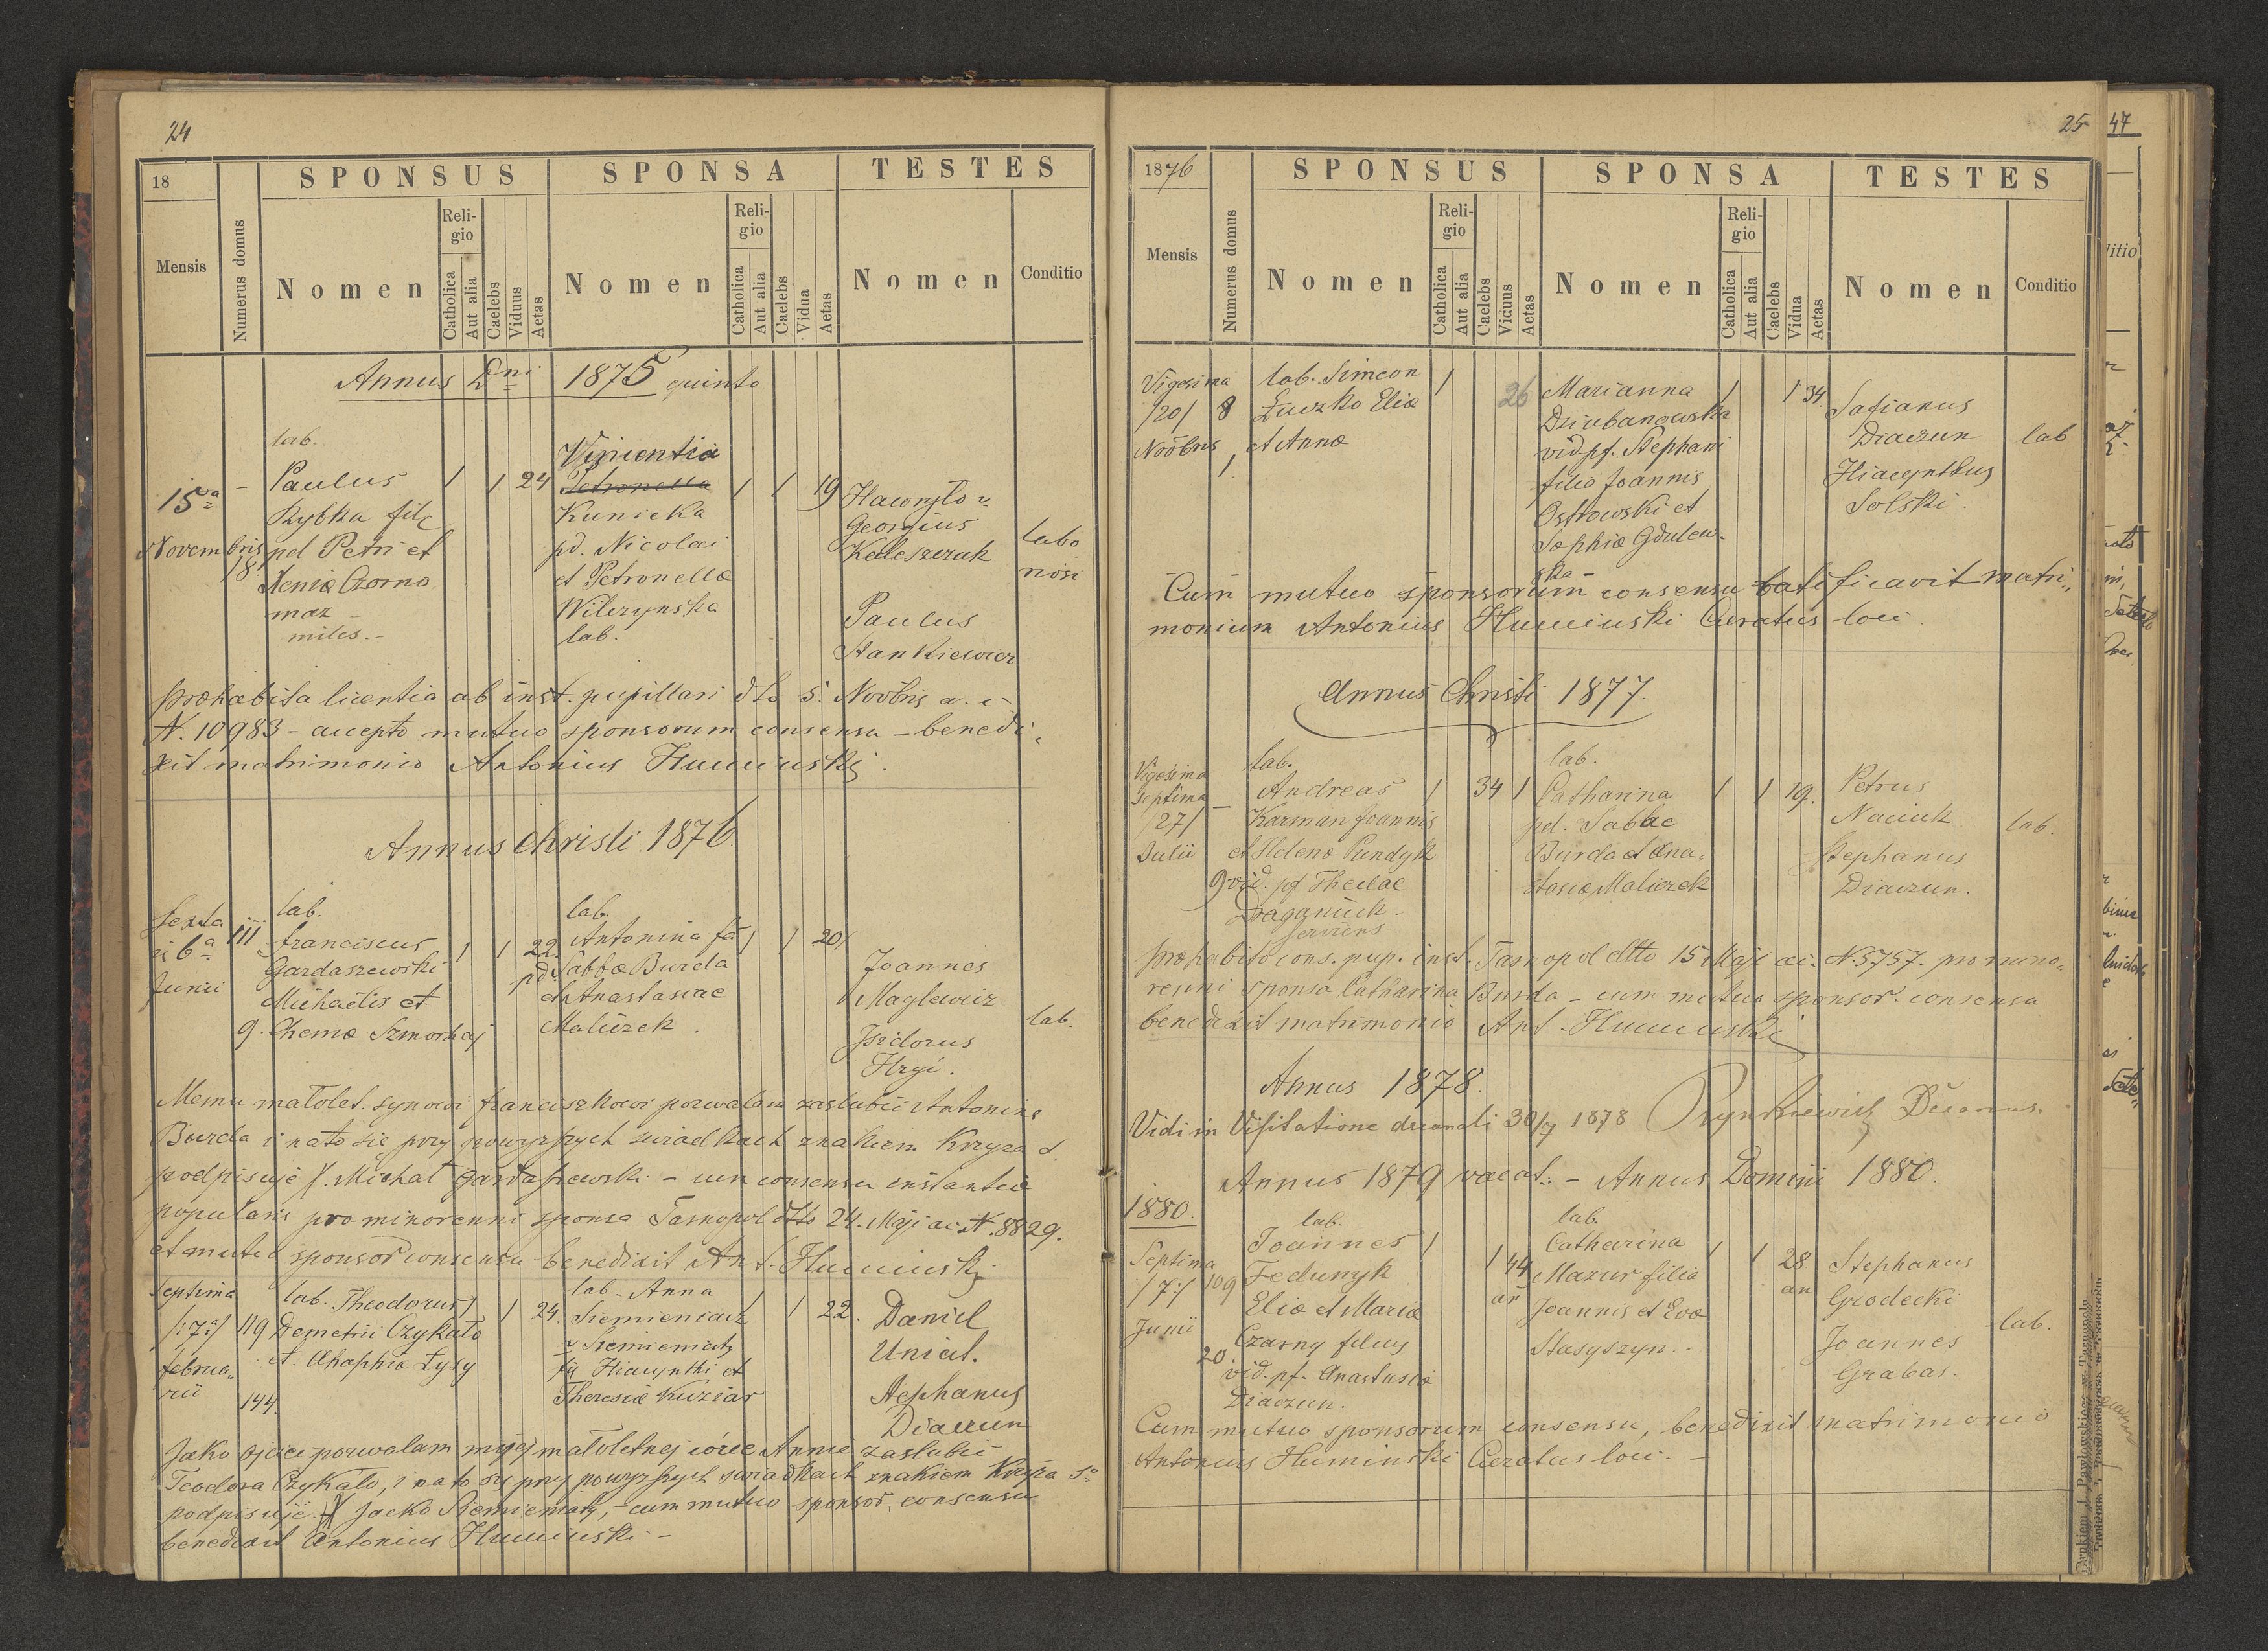 24
18
SPONSUS
SPONSA
TESTES
Mensis
Numerus domus
Nomen
Religio
Catholica
Aut alia
Caelebs
Viduus
Aetas
Nomen
Religio
Catholica
Aut alia
Caelebs
Vidua
Aetas
Nomen
Conditio
Annus Dni 1875 quinto
15a
Novembris
18
lab.
Paulus
Rybka fil
pd Petri et
Xeniæ Czorno
maz
miles.
1 1 24
Vincentia
Petronella
Kunicka
pd. Nicolai
et Petronellæ
Wilczyńska
lab.
1 1 19
Georgius
Paulus
Stankiewicz
labo
riosi
præhabita licentia ab inst. pupillari dto 5. Novbris a. c
N. 10983 - accepto mutuo sponsorum consensu - benedi
xit matrimonio Antonius Humiński
Annus Christi 1876
Sexta
6a
Junii
111
9.
lab.
Franciscus
Gardaszewski
Michaëlis et
1 1 22
lab.
Antonina fa
pd. Sabbæ Burda
et Anastasiae
Maliczek.
1 1 20
Joannes
Maglewicz
Isidorus
Hryi.
lab.
Memu małolet. synowi Franciszkowi pozwalam zaślubić Antoninę
Burda i na to się przy powyższych świadkach znakiem krzyża s.
podpisuję . Michał Gardaszewski. - cum consensu instantiæ
popularis pro minorenni sponsa Tarnopol dto 24. Maji ac. N. 8829.
et mutuo sponsor consensu benedixit Ant. Humiński
Septima
/:7:/
februa
rii
119
144.
lab. Theodorus
Demetrii Czykało
et Ahaphiæ Łysy
1 1 24.
lab. Anna
fil Hiacynthi et
Theresiæ Kuziar
1 1 22.
Daniel
Uniat.
Stephanus
Diaczun
Jako ojciec pozwalam mojej małoletniej córce Annie zaślubić
Teodora Czykało, i na to się przy powyższych świadkach znakiem krzyża s
podpisuję Jacko Siemieniatz, - cum mutuo sponsor. consensu
benedixit Antonius Humiński -
25
1876
SPONSUS
SPONSA
TESTES
Mensis
Numerus domus
Nomen
Religio
Catholica
Aut alia
Caelebs
Viduus
Aetas
Nomen
Religio
Catholica
Aut alia
Caelebs
Vidua
Aetas
Nomen
Conditio
Vigesima
/20/
Novbris
8
1
lab. Simeon
Łuczko Eliæ
et Annæ
1 26
Marianna
Dziubanowska
vid. pf. Stephani
filia Joannis
Ostrowski et
Sophiæ Gdulew
ska
1 1 34
Diaczun
Hiacynthus
Solski.
lab
Cum mutuo sponsorum consensu ratificavit matri
monium Antonius Humiński Curatus loci.
Annus Christi 1877.
Vigesima
septima
/27/
Julii
9
lab.
Andreas
Karman Joannis
et Helenæ Pundyk
vid. pf Theclae
Draganiuk
serviens
1 34 1
lab.
Catharina
pd. Sabbae
Burda et Ana
stasiæ Maliczek
1 1 19.
Petrus
Naciuk
Stephanus
Diaczun.
lab.
præhabito cons. pup. inst. Tarnopol dtto 15 Maji ac. N. 5757. pro mino
renni sponsa Catharina Burda - cum mutuo sponsor. consensu
benedixit matrimonio Ant. Humiński
Annus 1878.
Vidi in Visitatione decanali 30/7 1878 Decanus.
Annus 1879 vacat. - Annus Domini 1880.
1880.
Septima
/7/
Junii
109
20
lab.
Joannes
Fedunyk
Eliæ et Mariæ
Czarny filius
vid. pf. Anastasiæ
Diaczun.
1 1 44
an
lab.
Catharina
Mazur filia
Joannis et Evæ
Stasyszyn.
1 1 28
an
Stephanus
Grodecki
Joannes
Grabas.
lab.
Cum mutuo sponsorum consensu, benedixit matrimonio
Antonius Huminski Curatus loci. -
Drukiem J. Pawłowskiego w Tarnopolu
47